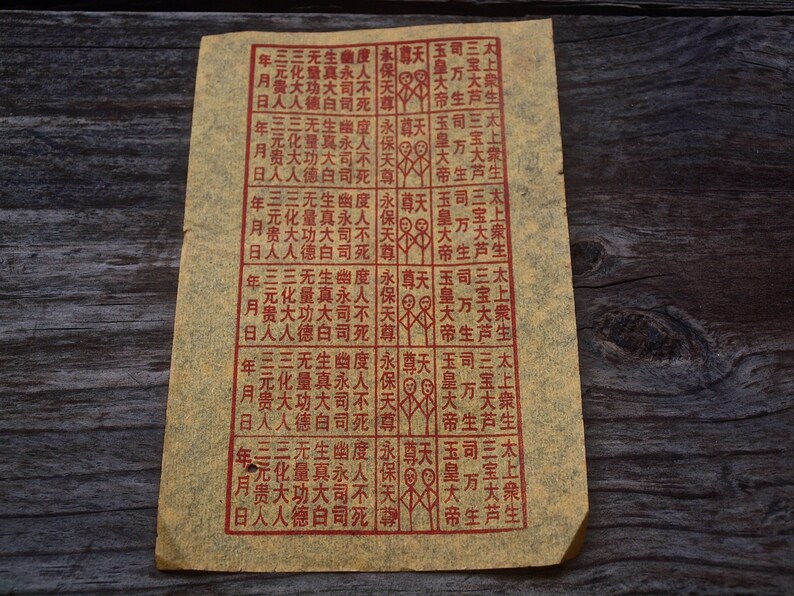 太上衆生
三宝大芦
司万生
玉皇大帝
天尊
永保天尊
度人不死
幽永司司
生真大白
无量功德
三化大人
三元贵人
年月日
太上衆生
三宝大芦
司万生
玉皇大帝
天尊
永保天尊
度人不死
幽永司司
生真大白
无量功德
三化大人
三元贵人
年月日
太上衆生
三宝大芦
司万生
玉皇大帝
天尊
永保天尊
度人不死
幽永司司
生真大白
无量功德
三化大人
三元贵人
年月日
太上衆生
三宝大芦
司万生
玉皇大帝
天尊
永保天尊
度人不死
幽永司司
生真大白
无量功德
三化大人
三元贵人
年月日
太上衆生
三宝大芦
司万生
玉皇大帝
天尊
永保天尊
度人不死
幽永司司
生真大白
无量功德
三化大人
三元贵人
年月日
太上衆生
三宝大芦
司万生
玉皇大帝
天尊
永保天尊
度人不死
幽永司司
生真大白
无量功德
三化大人
三元贵人
年月日